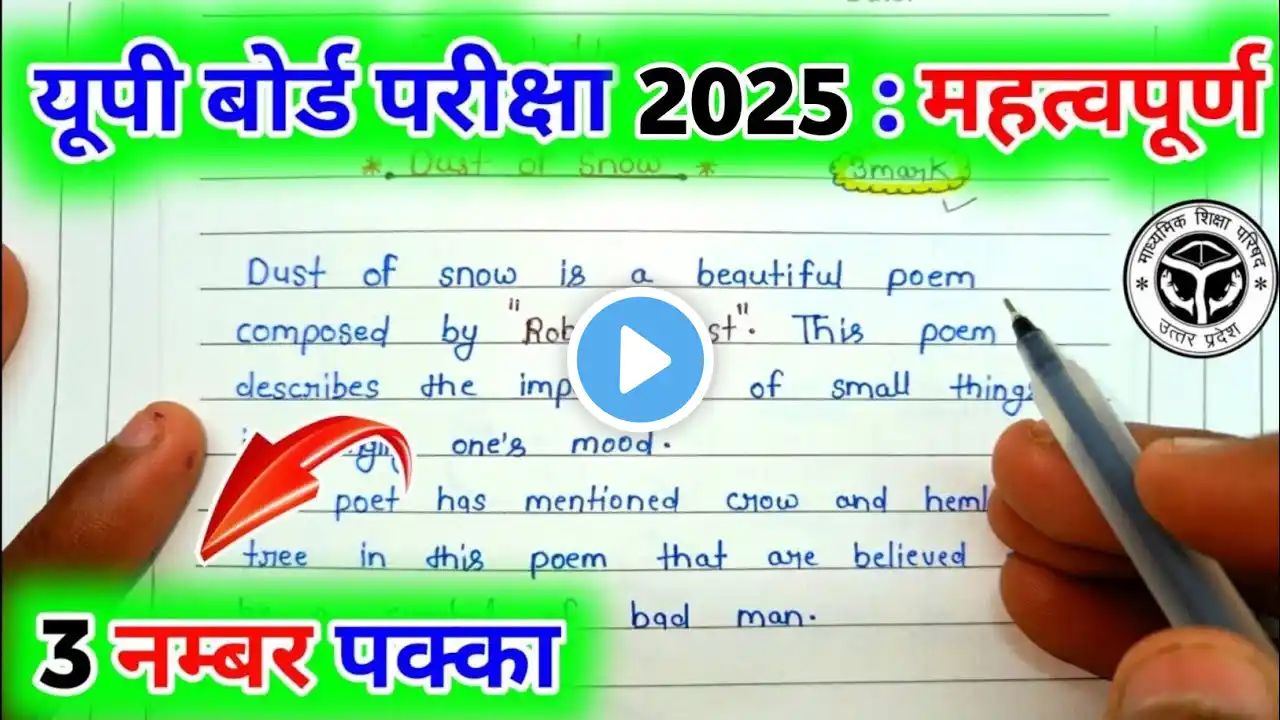 यूपी बोर्ड परीक्षा 2025 : महत्वपूर्ण
* Dust of Snow *
3mark
माध्यमिक शिक्षा परिषद
उत्तर प्रदेश
Dust of snow is a beautiful poem
composed by "Rob st". This poem
describes the imp of small things
one's mood.
poet has mentioned crow and heml
tree in this poem that are believed
bad man.
3 नम्बर पक्का